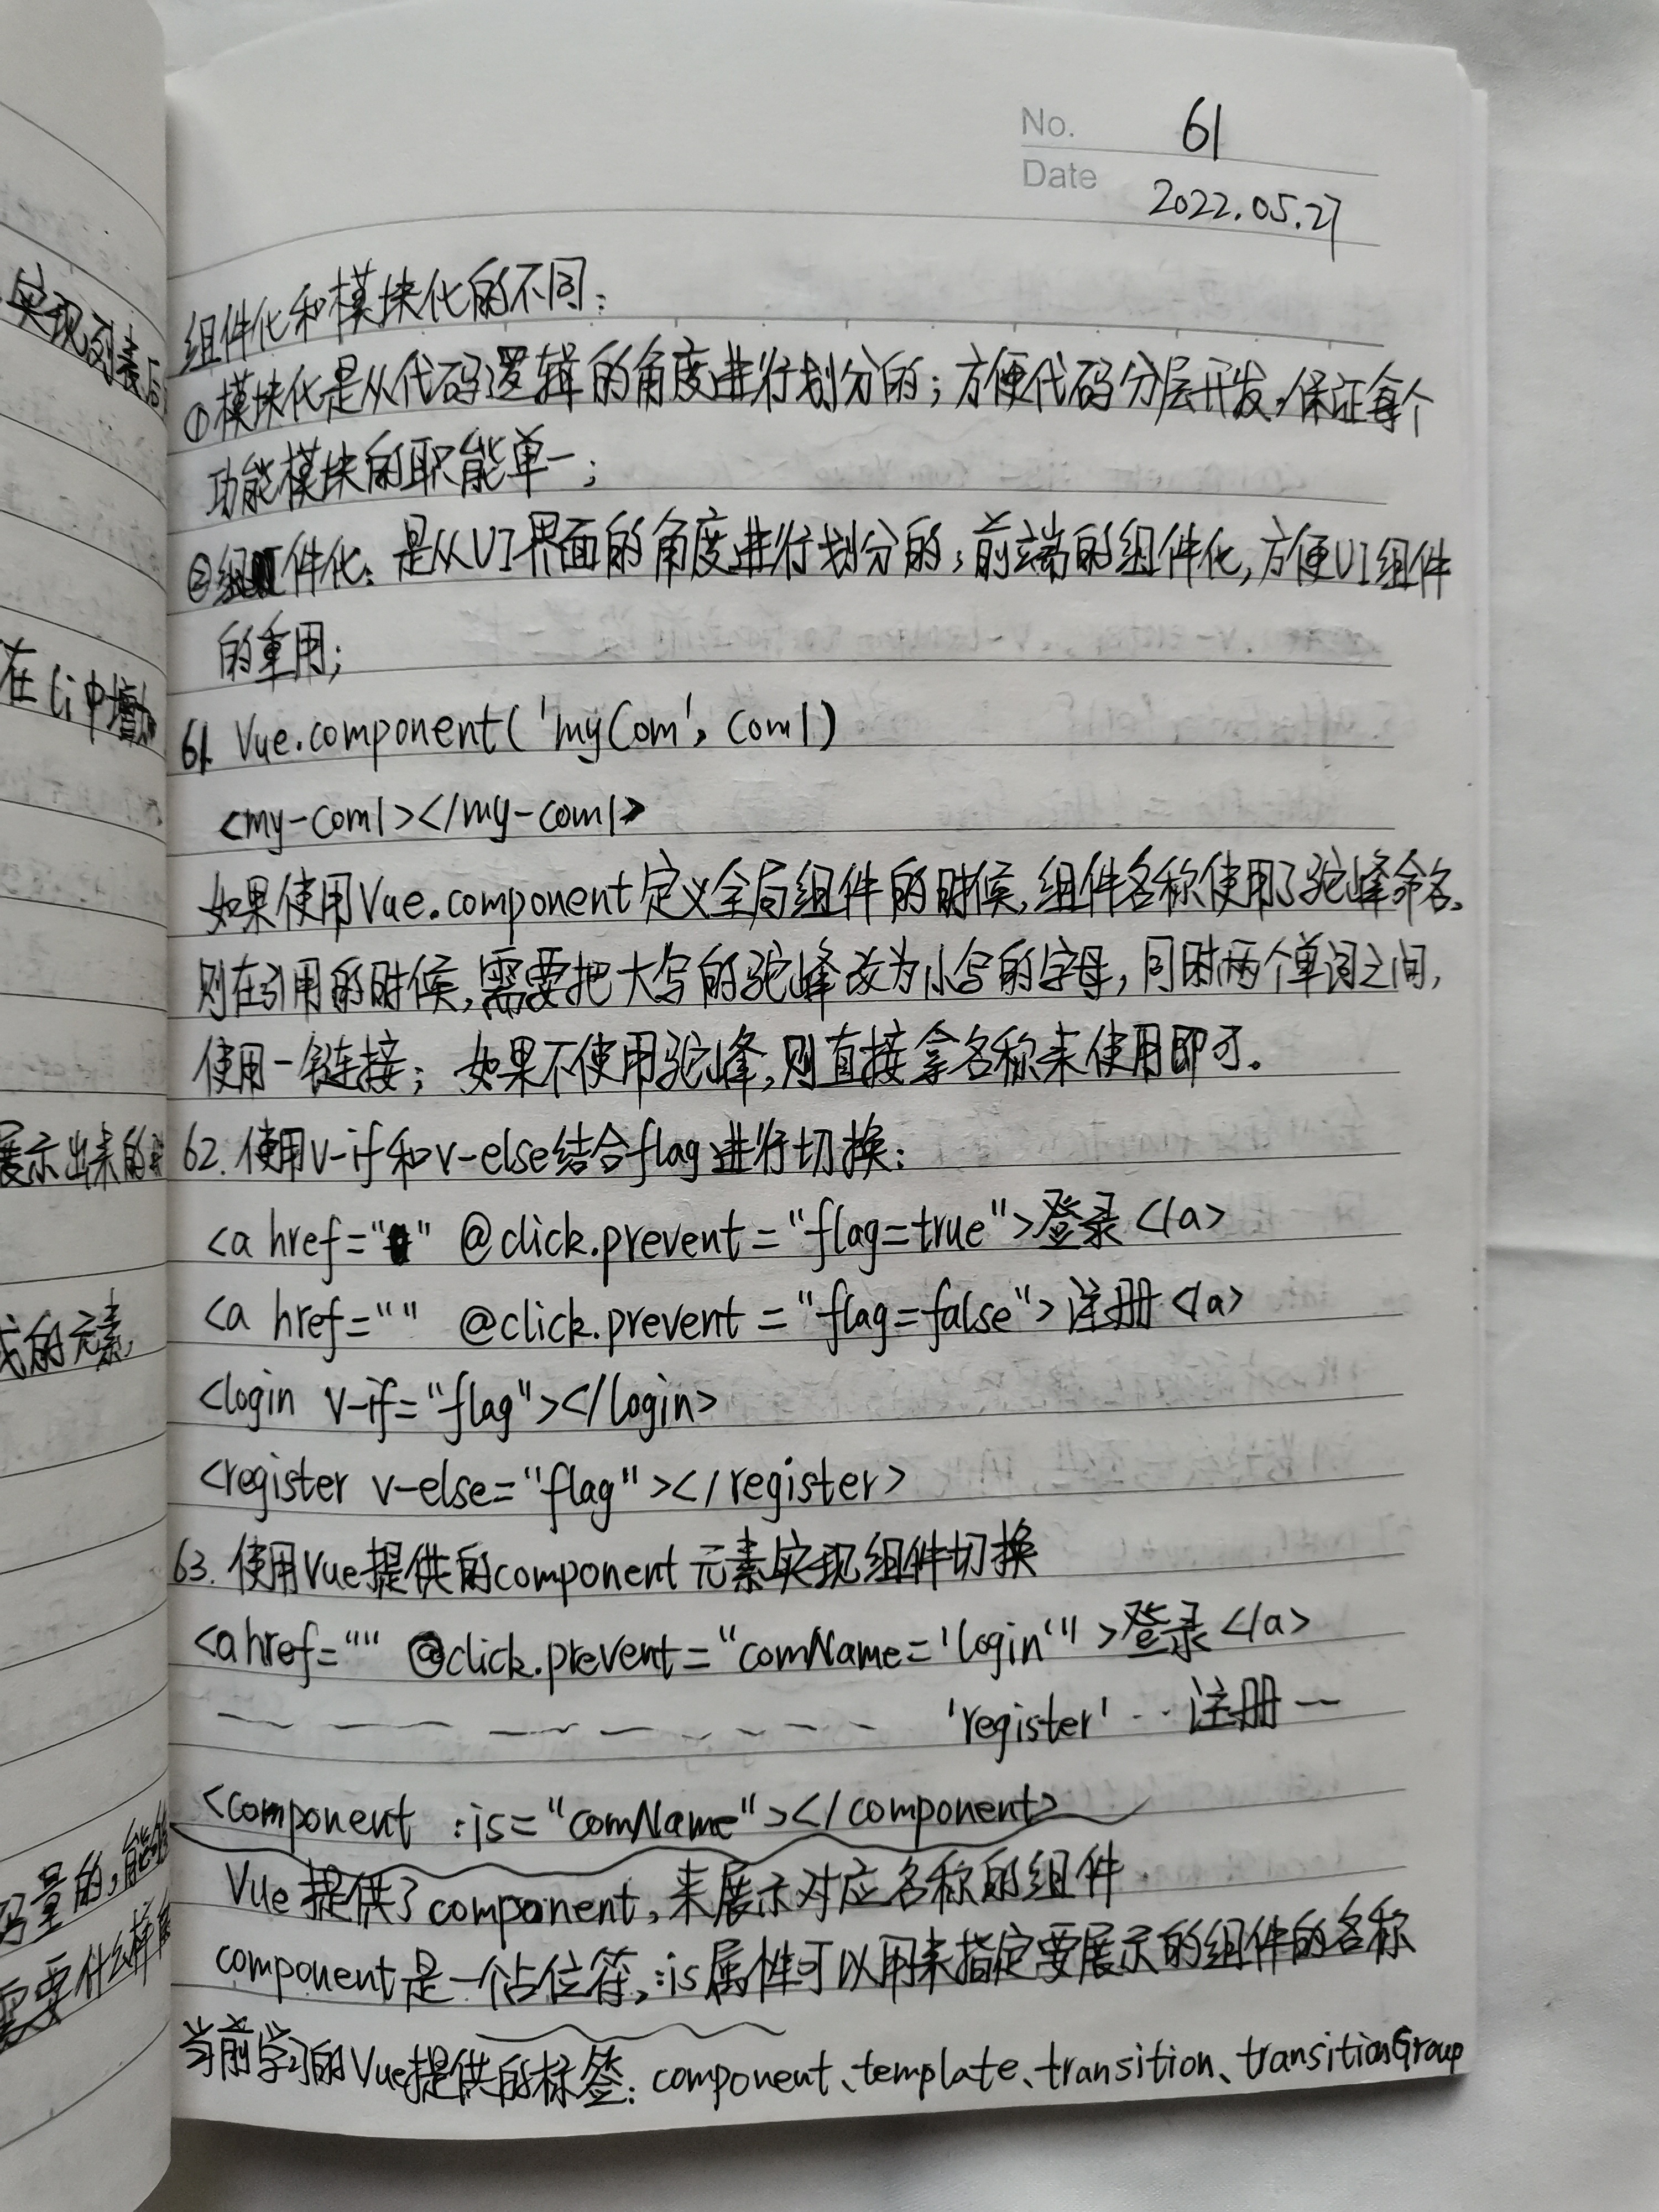 实现列表后
在li中增加
展示出来的
式的元素,
码量的,能够
需要什么样
No. 61
Date 2022.05.27
组件化和模块化的不同:
①模块化是从代码逻辑的角度进行划分的;方便代码分层开发,保证每个
功能模块的职能单一;
②组件化:是从UI界面的角度进行划分的;前端的组件化,方便UI组件
的重用;
61. Vue.component('myCom', com1)
<my-com1></my-com1>
如果使用Vue.component定义全局组件的时候,组件名称使用了驼峰命名,
则在引用的时候,需要把大写的驼峰改为小写的字母,同时两个单词之间,
使用-链接;如果不使用驼峰,则直接拿名称来使用即可。
62. 使用v-if和v-else结合flag进行切换:
<a href="" @click.prevent="flag=true">登录</a>
<a href="" @click.prevent="flag=false">注册</a>
<login v-if="flag"></login>
<register v-else="flag"></register>
63. 使用Vue提供的component元素实现组件切换
<a href="" @click.prevent="comName='login'">登录</a>
'register' ·· 注册 --
<component :is="comName"></component>
Vue提供了component,来展示对应名称的组件
component是一个占位符,:is属性可以用来指定要展示的组件的名称
当前学习的Vue提供的标签:component、template、transition、transitionGroup